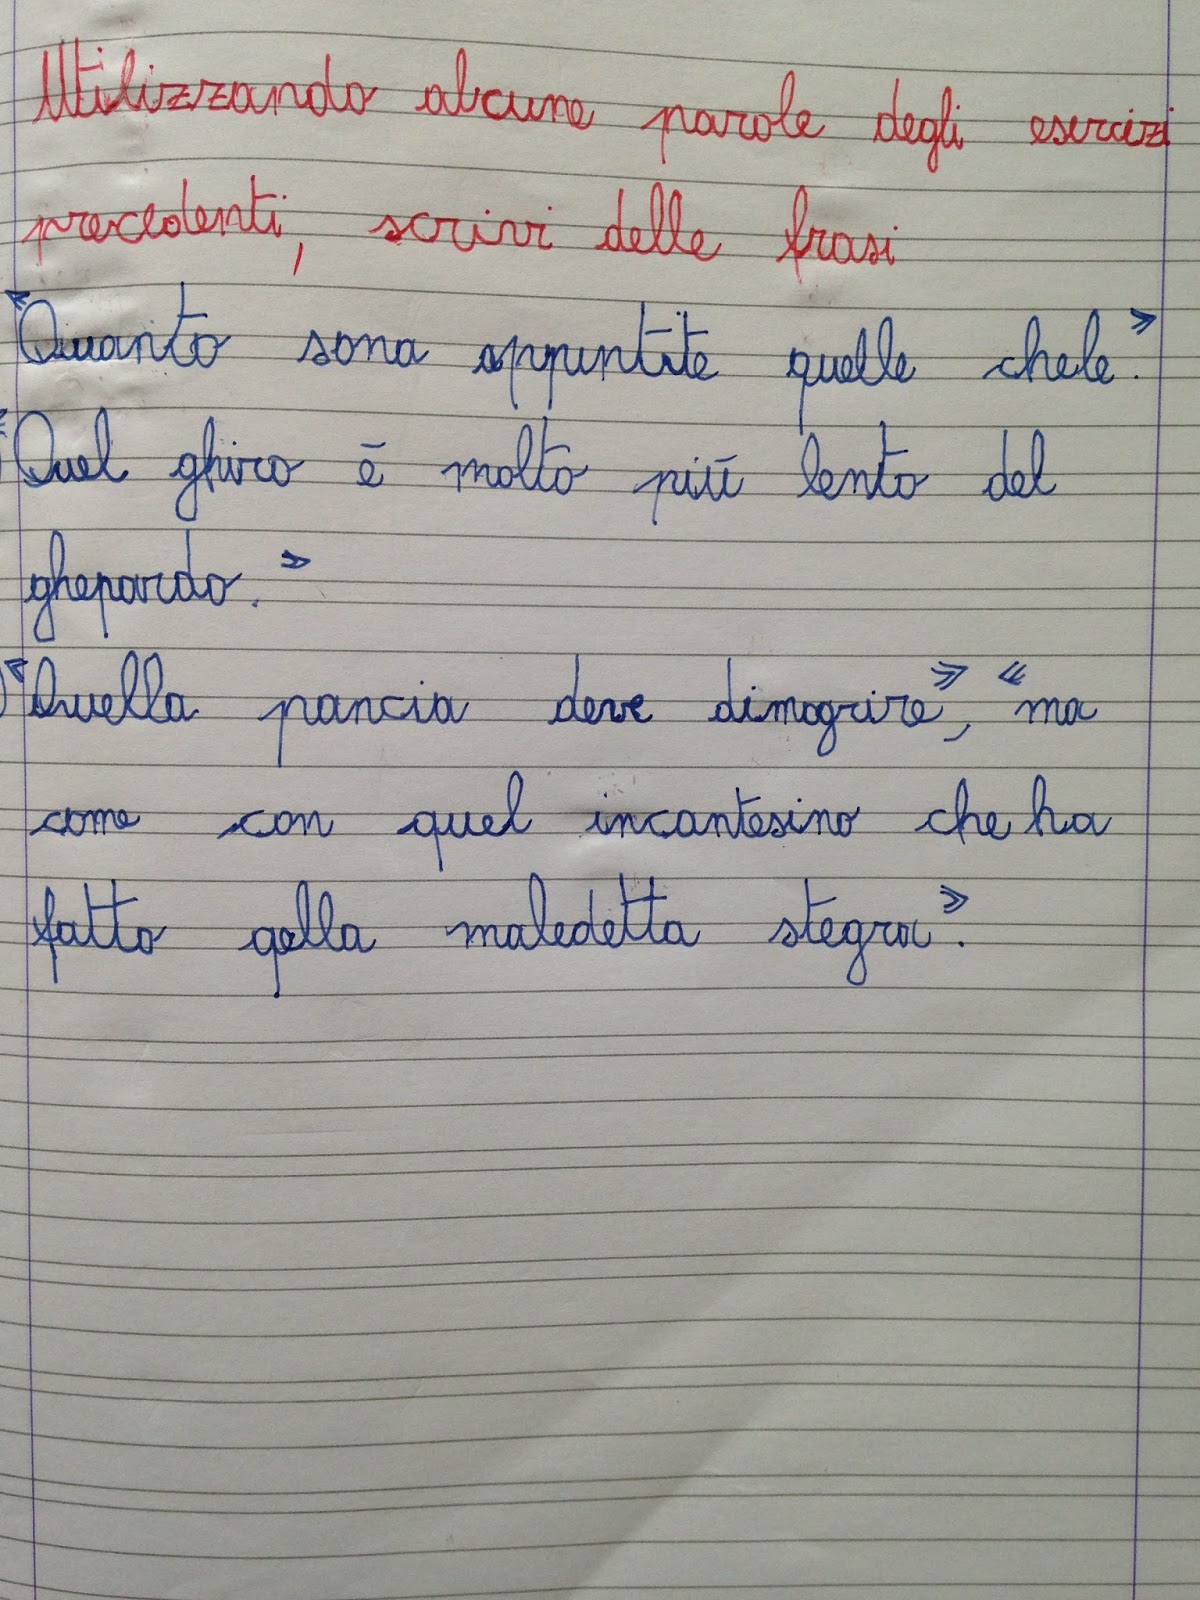 Utilizzando alcune parole degli esercizi
precedenti, scrivi delle frasi
"Quanto sono appuntite quelle chele."
"Quel ghiro è molto più lento del
ghepardo."
"Quella pancia deve dimagrire", "ma
come con quel incantesino che ha
fatto qella maledetta stegra".